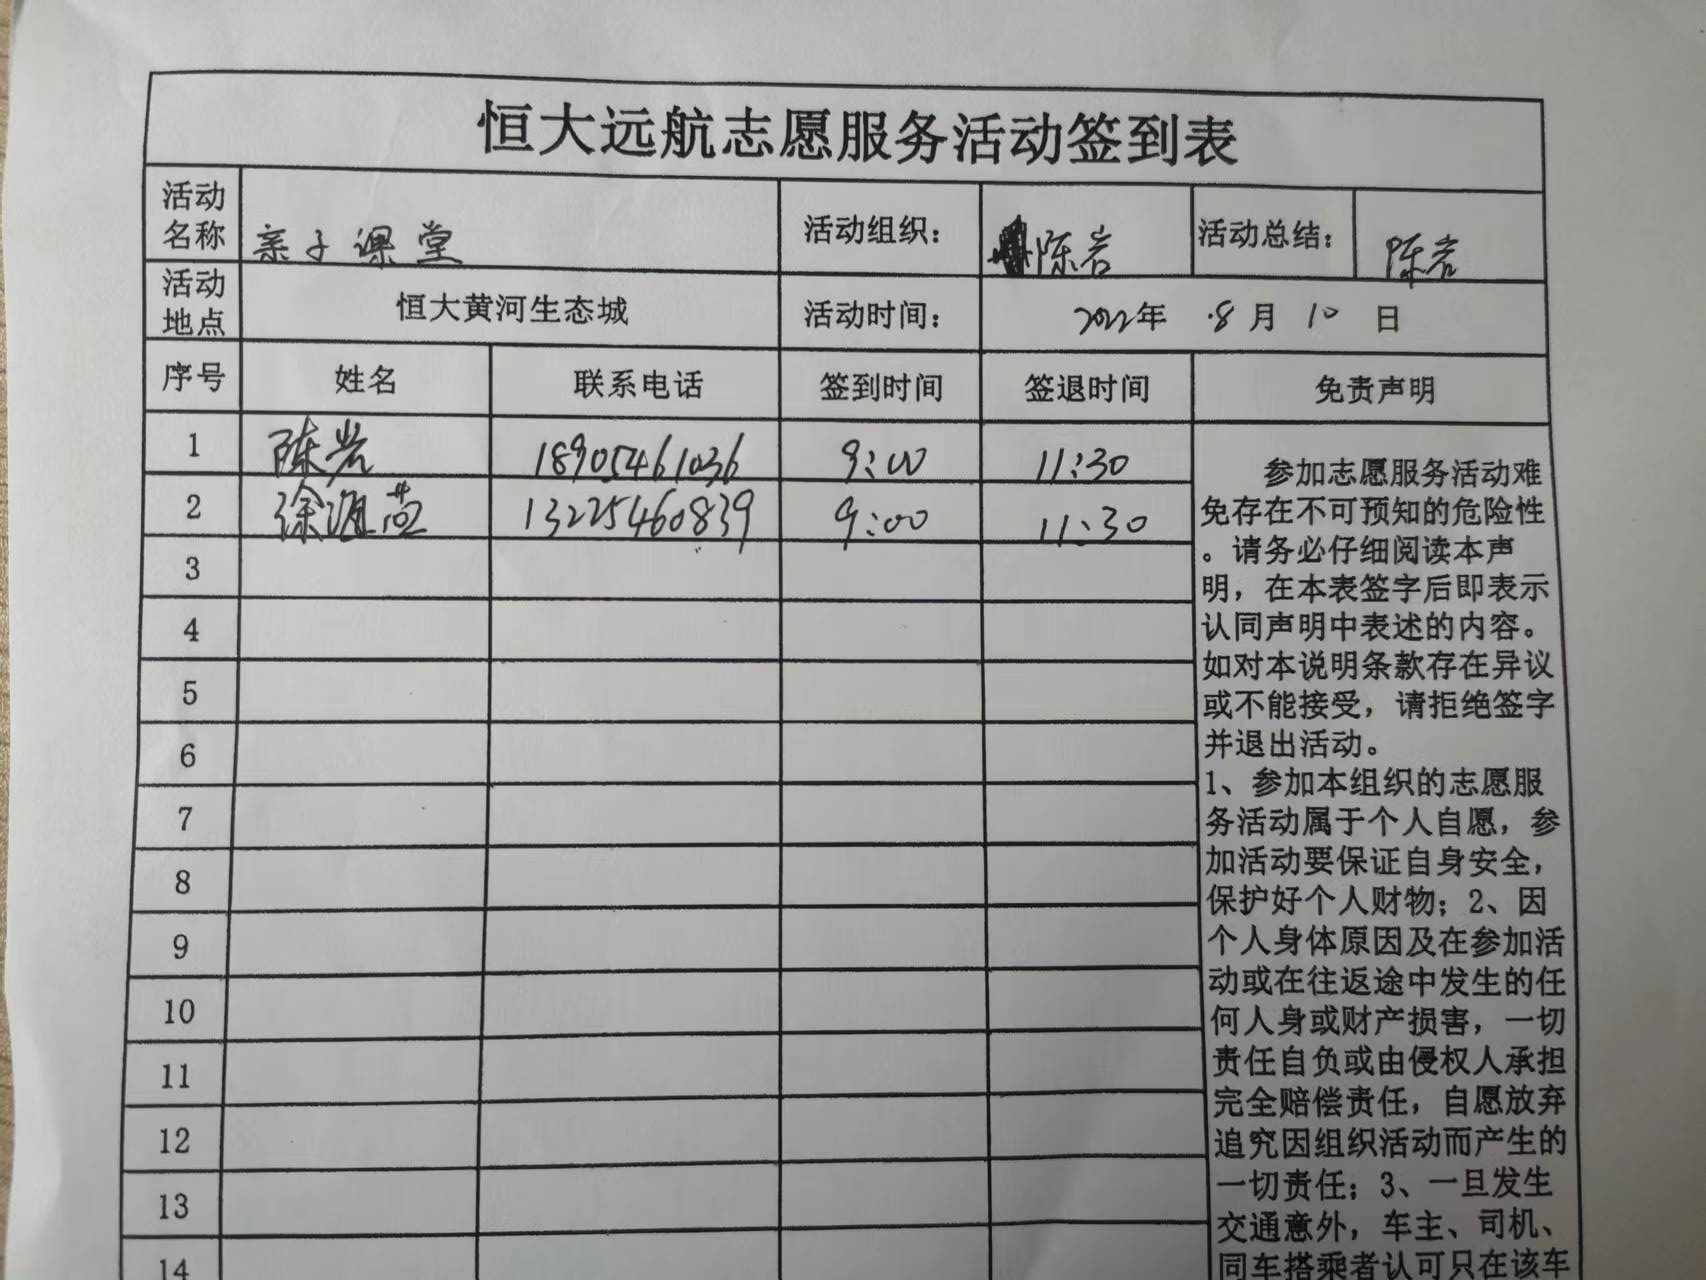 恒大远航志愿服务活动签到表
活动名称 亲子课堂 活动组织： 陈岩 活动总结： 陈岩
活动地点 恒大黄河生态城 活动时间： 2022年 8月 10日
序号 姓名 联系电话 签到时间 签退时间 免责声明
1 陈岩 18905461036 9:00 11:30
2 徐 13225460839 9:00 11:30
3
4
5
6
7
8
9
10
11
12
13
14
参加志愿服务活动难
免存在不可预知的危险性
。请务必仔细阅读本声
明，在本表签字后即表示
认同声明中表述的内容。
如对本说明条款存在异议
或不能接受，请拒绝签字
并退出活动。
1、参加本组织的志愿服
务活动属于个人自愿，参
加活动要保证自身安全，
保护好个人财物；2、因
个人身体原因及在参加活
动或在往返途中发生的任
何人身或财产损害，一切
责任自负或由侵权人承担
完全赔偿责任，自愿放弃
追究因组织活动而产生的
一切责任；3、一旦发生
交通意外，车主、司机、
同车搭乘者认可只在该车